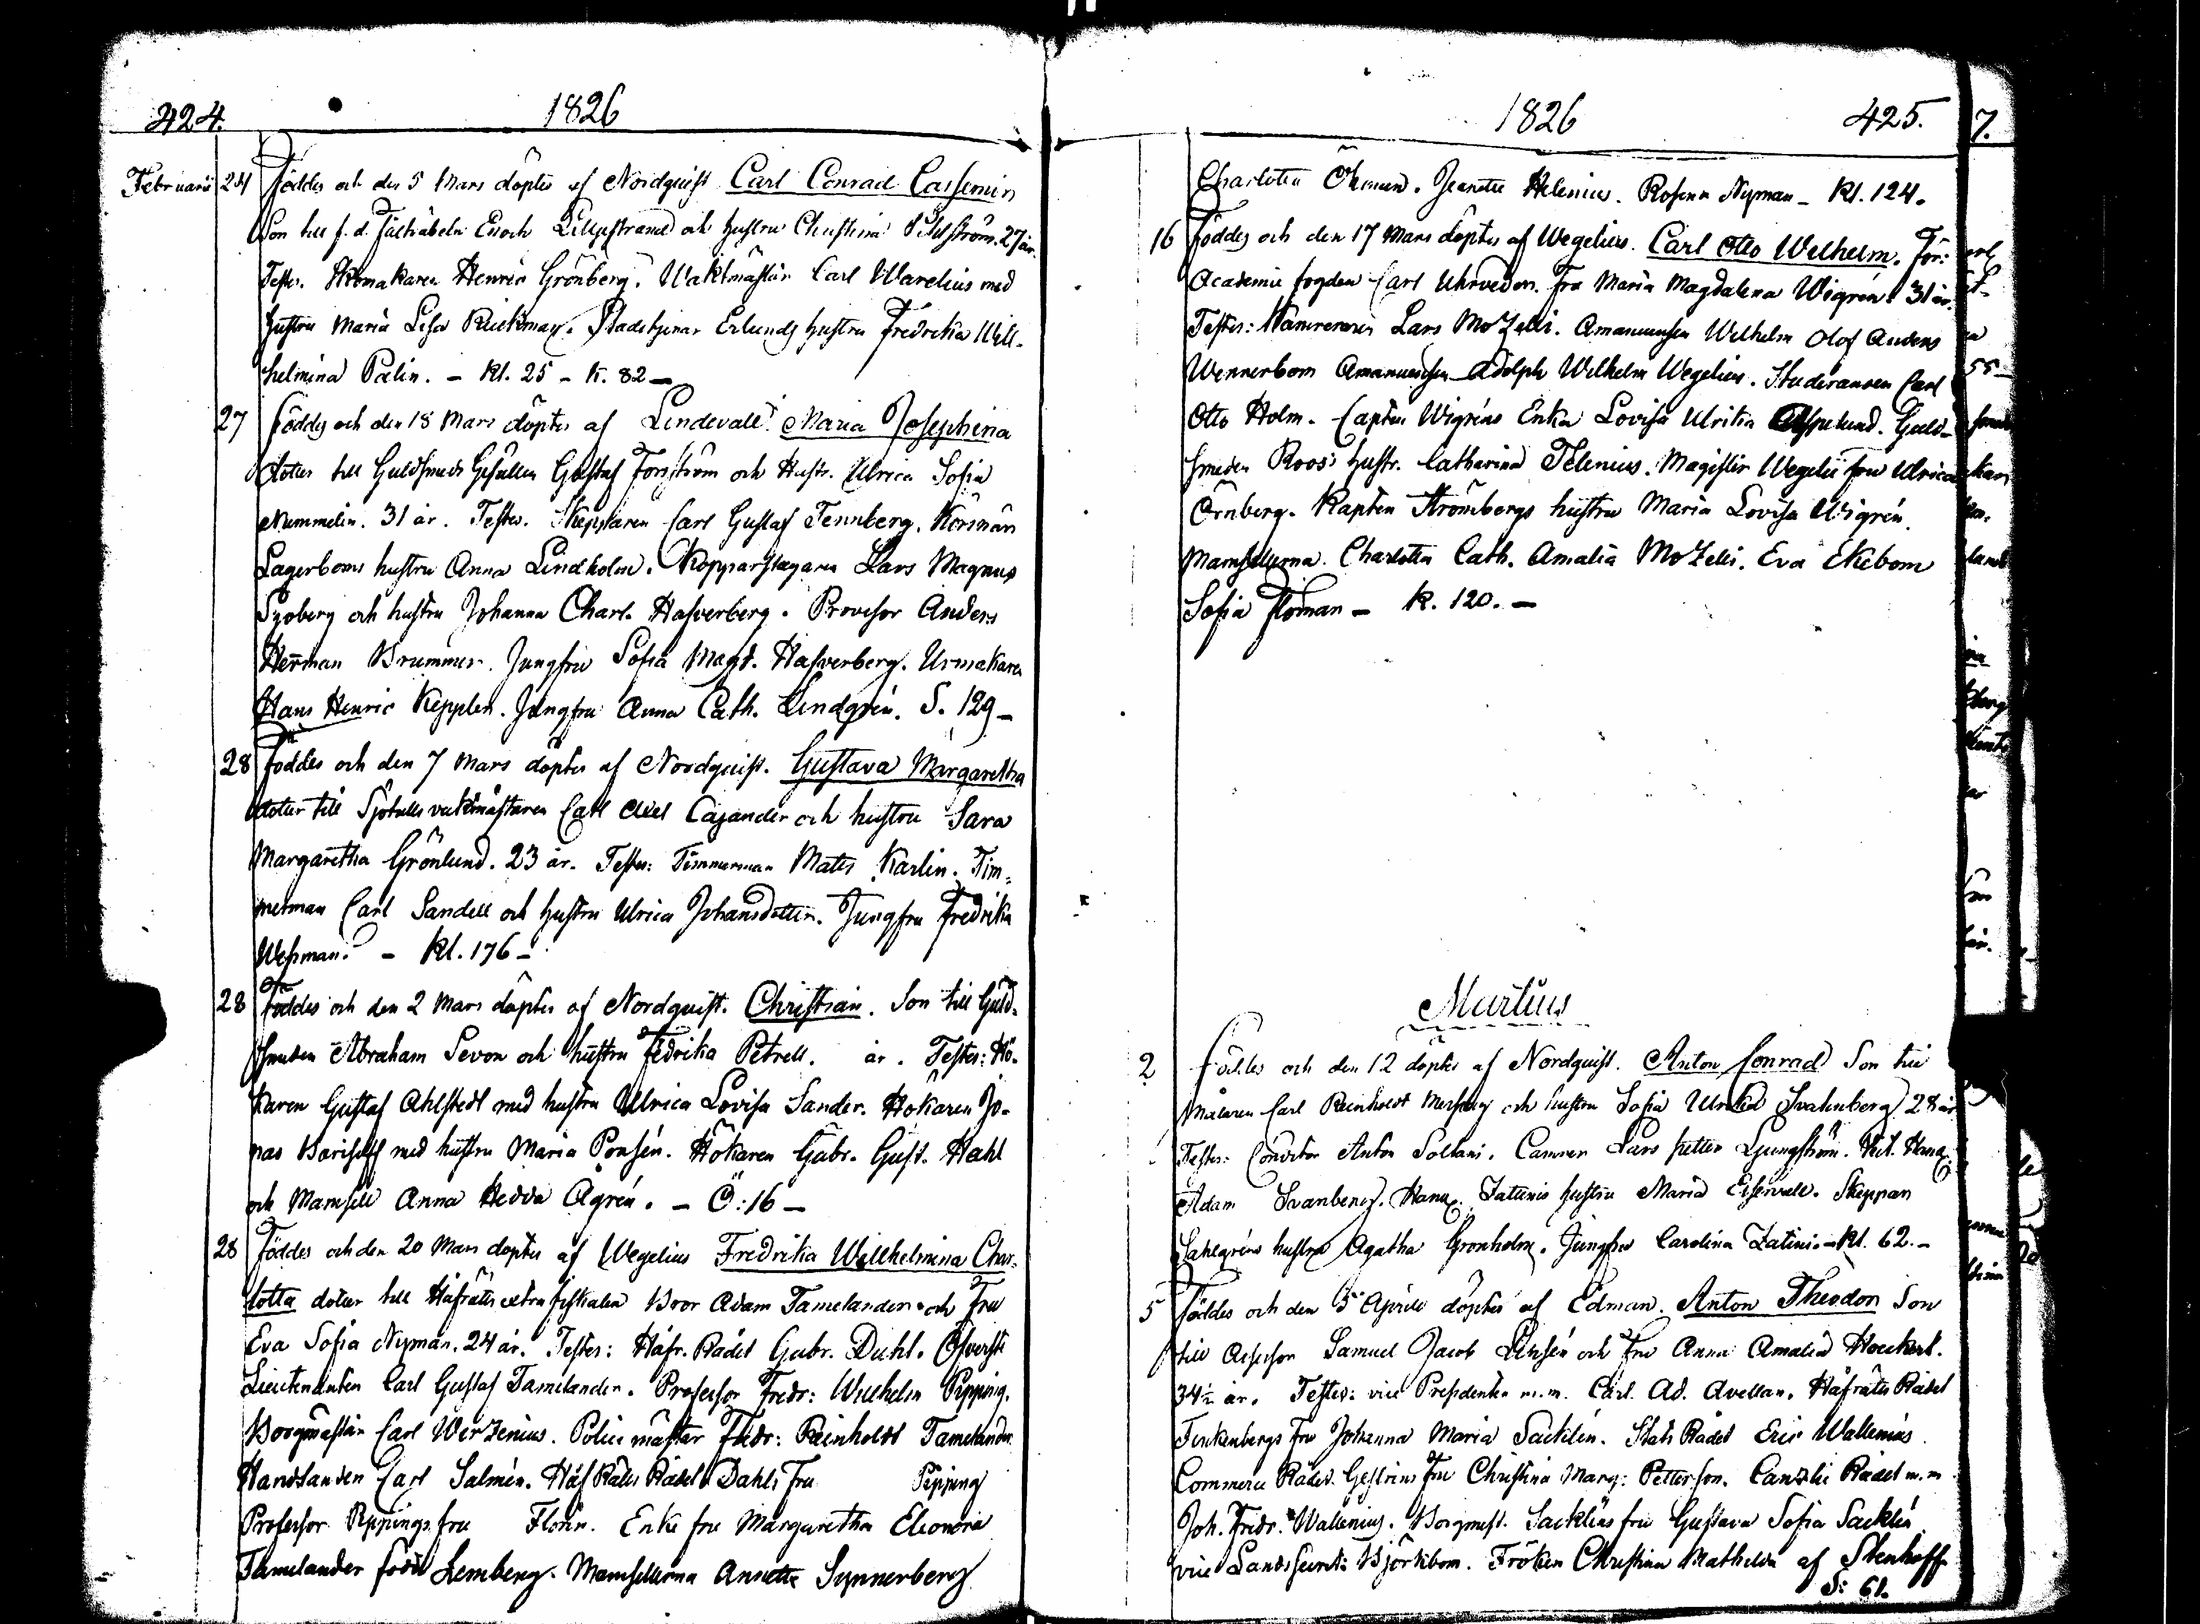 424. 1826
Februarii 24 Föddes och den 5 Mars döptes af Nordquist Carl Conrad Cassimir
Son till f. d. Fältväbeln Enoch Liljestrand och hustru Christina 27 år.
Testes. Kromakaren Henric Grönberg. Waktmästar Carl Warelius med
hustru Maria Lisa Rückman. Stadstjenar Erlunds hustru Fredrika Will-
helmina Palin. - Kl. 25 - K. 82 -
27 föddes och den 18 Mars döptes af Lindevall. Maria Josephina
dotter till Guldsmeds Gesällen Gustaf Forsström och Hustr. Ulrica Sofia
Nummelin. 31 år. Testes. Skepparen Carl Gustaf Tennberg. Körsnär
Lagerboms hustru Anna Lindholm. Kopparslagaren Lars Magnus
Syoberg och hustru Johanna Charl. Hasverberg. Provisor Anders
Herman Brummer. Jungfru Sofia Magd. Hasverberg. Urmakaren
Hans Henric Kepplen. Jungfru Anna Cath. Lindgrén. S. 129 -
28 Föddes och den 7 Mars döptes af Nordquist. Gustava Margaretha
dotter till Sjötulls vaktmästaren Carl Axel Cajander och hustru Sara
Margaretha Grönlund. 23 år. Testes: Timmerman Mats Karlin. Tim-
merman Carl Sandell och hustru Ulrica Johansdotter. Jungfru Fredrika
Wessman. - Kl. 176 -
28 Föddes och den 2 Mars döptes af Nordquist. Christian. Son till Guld-
smeden Abraham Levon och hustru Fredrika Petrell. år. Testes: Hö-
karen Gustaf Ahlstedt med hustru Ulrica Lovisa Sander. Hökaren Jo-
nas Borisoff med hustru Maria Ponsén. Hökaren Gabr. Gust. Hahl
och Mamsell Anna Hedda Ågrén. - Ö: 16 -
28 Föddes och den 20 Mars döptes af Wegelius Fredrika Willhelmina Char-
lotta dotter till Håfrätts extra fiskalen Bror Adam Tamelander och Fru
Eva Sofia Nyman. 24 år. Testes: Håfr. Rådet Gabr. Dahl. Öfverste
Lieutenanten Carl Gustaf Tamelander. Professor Fredr: Wilhelm Pipping.
Borgmästar Carl Werzenius. Policimästar Fredr: Reinholdt Tamelander
Handlanden Carl Salmén. Håf Rätts Rådet Dahls Fru Pipping
Professor Pippings fru Florin. Enke fru Margaretha Eleonora
Tamelander född Lemberg. Mamsellerna Annette Synnerberg
1826 425.
Charlotta Öhman. Jeanette Helenius. Rosina Nyman - Kl. 124.
16 Föddes och den 17 Mars döptes af Wegelius. Carl Otto Wilhelm. För:
Academie fogden Carl Uhrveder. Fru Maria Magdalena Wigren. 31 år.
Testes: Kamreraren Lars Mozelli. Amanuensen Wilhelm Olof Anders
Wennerbom Amanuensen Adolph Wilhelm Wegelius. Studeranden Carl
Otto Holm. Capten Wigréns Enka Lovisa Ulrika Asplund. Guld-
smeden Roos's hustr. Catharina Telenius. Magister Wegelii fru Ulrica
Örnberg. Kapten Strömbergs hustru Maria Lovisa Wigrén.
Mamsellerna Charlotta Cath. Amalia Mozelli. Eva Ekebom
Sofia Floman - K. 120. -
Martius
2 föddes och den 12 döptes af Nordquist. Anton Conrad Son till
Målaren Carl Reinholdt och hustru Sofia Ulrika Svahnberg 28 år
Testes: Conditor Anton Soltani. Camrer Lars Petter Ljungström. Vict. Hand.
Adam Svanberg. Hand. Zatinis hustru Maria Eiservall. Skeppar
Sahlgréns hustru Agatha Gronholm. Jungfru Carolina Zatini. - Kl. 62. -
5 Föddes och den 5 Aprile döptes af Edman. Anton Theodor Son
till Assessor Samuel Jacob och Fru Anna Amalia Hoeckert.
34½ år. Testes: vice Presidenten m.m. Carl Ad. Avellan. Håfrätts Rådet
Finkenbergs fru Johanna Maria Sacklén. Stats Rådet Eric Wallenius.
Commerce Rådet Gestrins Fru Christina Marg: Petterson. Canzlie Rådet m.m
Joh. Fredr. Wallenius. Borgmest. Sackléns fru Gustava Sofia Sacklén
vice Landssecret: Björkbom. Fröken Christina Mathilda af Stenhoff
S: 61.